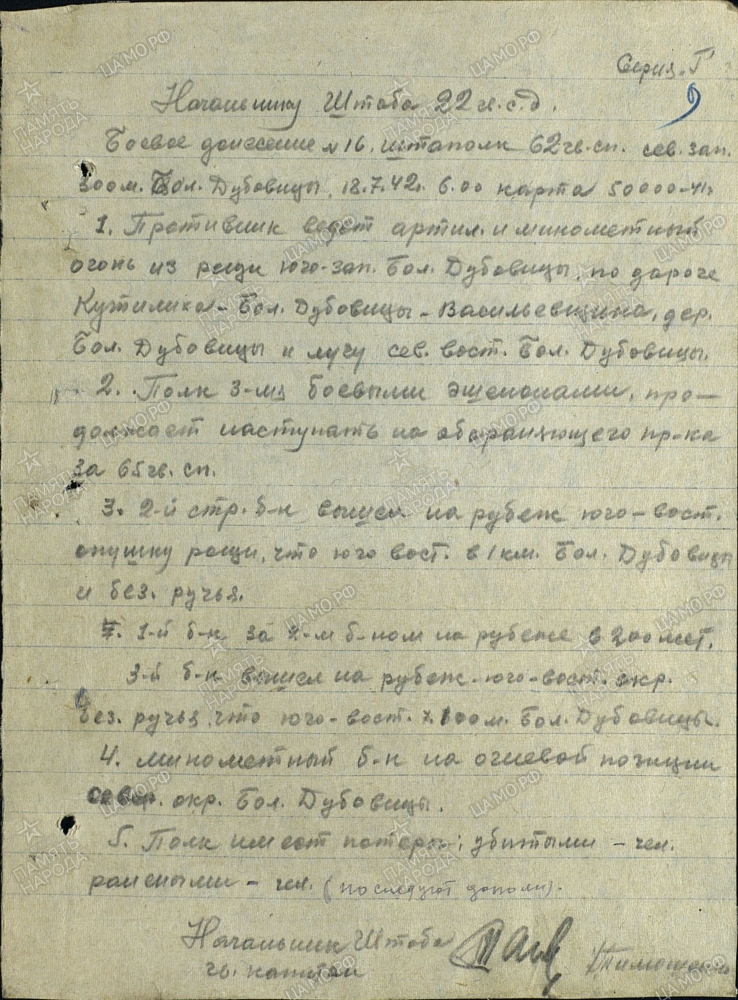 Серия "Г"
9
Начальнику Штаба 22 гв.с.д.
Боевое донесение № 16. штаполк 62 гв.сп. сев.зап.
300 м. Бол. Дубовицы. 18.7.42г. 6.00 карта 50000-41г.
1. Противник ведет артил. и минометный
огонь из рощи юго-зап. Бол. Дубовицы, по дороге
Бол. Дубовицы - Васильевщина, дер.
Бол. Дубовицы и лугу сев. вост. Бол. Дубовицы.
2. Полк 3-мя боевыми эшелонами, про-
должает наступать на обороняющего пр-ка
за 65 гв. сп.
3. 2-й стр. б-н вышел на рубеж юго-вост.
опушку рощи, что юго вост. в 1 км. Бол. Дубовицы
и без. ручья.
1-й б-н за 2-м б-ном на рубеже в 200 мет.
3-й б-н вышел на рубеж юго-вост. окр.
без. ручья, что юго-вост. Бол. Дубовицы.
4. минометный б-н на огневой позиции
север. окр. Бол. Дубовицы.
5. Полк имеет потери: убитыми - чел.
ранеными - чел. (последуют дополн).
Начальник Штаба
гв. капитан
/Тимошенко